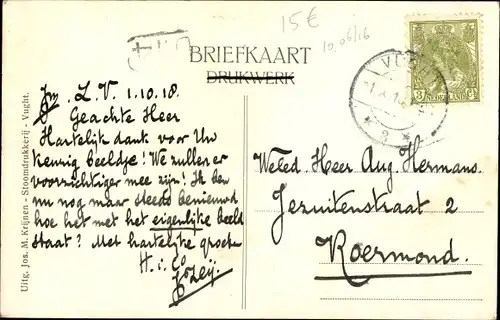 15€
10.06/16
BRIEFKAART
DRUKWERK
VUGHT
2
NEDERLAND
L. V. 1.10.18.
Geachte Heer
Hartelijk dank voor Uw
keurig beeldje! We zullen er
voorzichtiger mee zijn! Ik ben
nu nog maar steeds benieuwd
hoe het met het eigenlijke beeld
staat? Met hartelijke groeten
H. i. Co
Weled. Heer Aug. Hermans.
Jezuitenstraat 2
Roermond.
Uitg. Jos. M. Krijnen - Stoomdrukkerij - Vught.